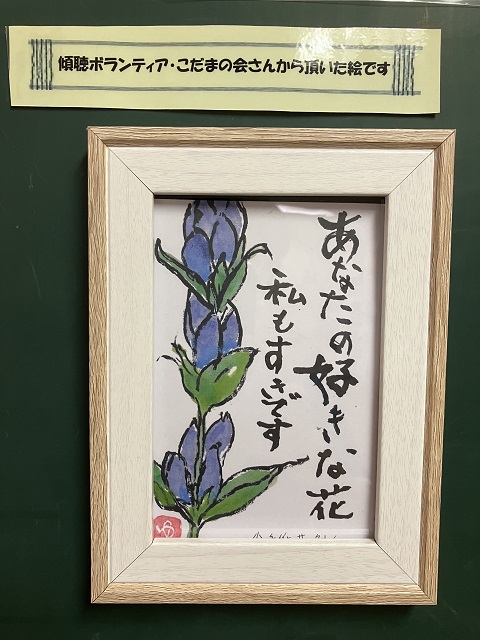 傾聴ボランティア・こだまの会さんから頂いた絵です
あなたの好きな花
私もすきです